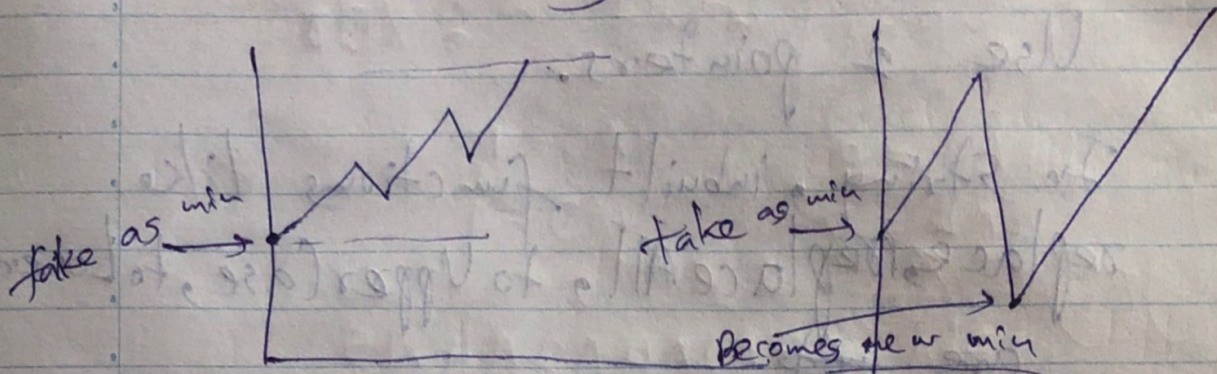 take as min
take as min
Becomes new min